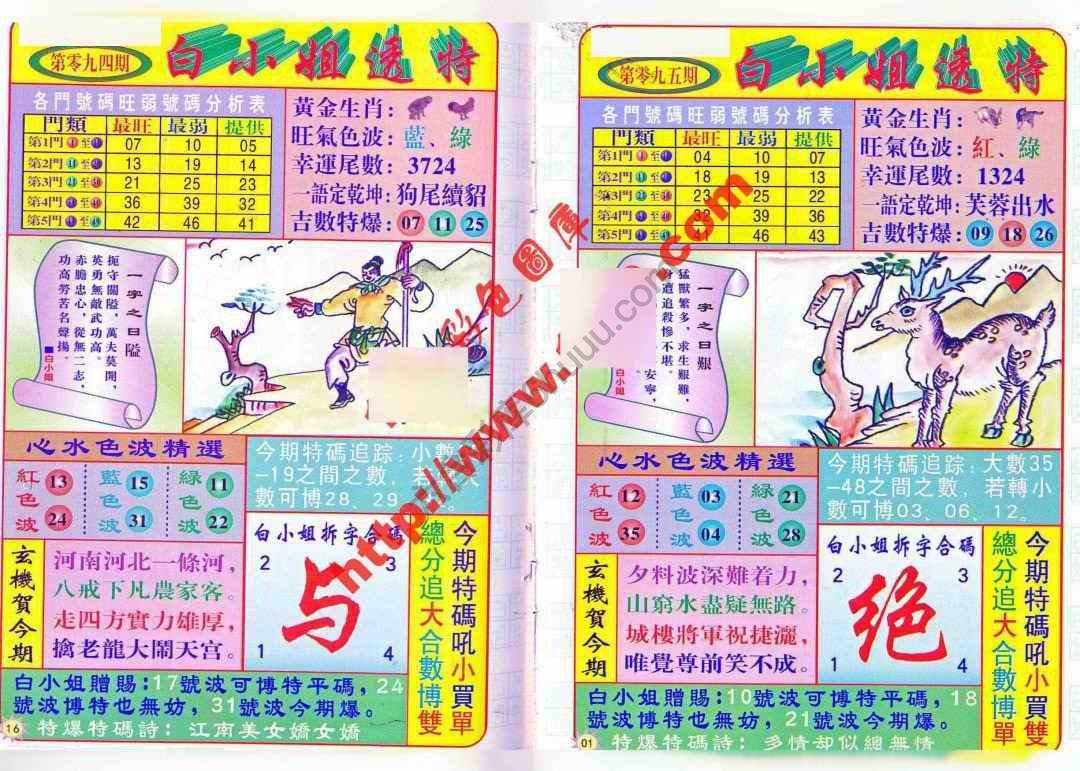 第零九四期
白小姐透特
各門號碼旺弱號碼分析表
門類 最旺 最弱 提供
第1門 至 07 10 05
第2門 至 13 19 14
第3門 至 21 25 23
第4門 至 36 39 32
第5門 至 42 46 41
黃金生肖：
旺氣色波：藍、綠
幸運尾數：3724
一語定乾坤：狗尾續貂
吉數特爆：07 11 25
一字之曰隘
扼守關隘，萬夫莫開，
英勇無敵武功高。
赤膽忠心，從無二志，
功高勞苦名聲揚。
■白小姐
心水色波精選
紅色波 13 24
藍色波 15 31
綠色波 11 22
今期特碼追踪：小數
-19之間之數，若
數可博28、29
玄機賀今期
河南河北一條河，
八戒下凡農家客。
走四方實力雄厚，
擒老龍大鬧天宮。
白小姐拆字合碼
2 3
与
1 4
總分追大合數博雙
今期特碼吼小買單
白小姐贈賜：17號波可博特平碼，24
號波博特也無妨，31號波今期爆。
16
特爆特碼詩：江南美女嬌女嬌
第零九五期
白小姐透特
各門號碼旺弱號碼分析表
門類 最旺 最弱 提供
第1門 至 04 10 07
第2門 至 18 19 13
第3門 至 23 25 22
第4門 至 32 39 36
第5門 至 41 46 43
黃金生肖：
旺氣色波：紅、綠
幸運尾數：1324
一語定乾坤：芙蓉出水
吉數特爆：09 18 26
一字之曰艱
猛獸繁多，求生艱難，
身遭追殺慘不堪。
安寧，
白小姐
心水色波精選
紅色波 12 35
藍色波 03 04
綠色波 21 28
今期特碼追踪：大數35
-48之間之數，若轉小
數可博03、06、12。
玄機賀今期
夕料波深難着力，
山窮水盡疑無路。
城樓將軍祝捷灑，
唯覺尊前笑不成。
白小姐拆字合碼
2 3
绝
1 4
總分追大合數博單
今期特碼吼小買單
白小姐贈賜：10號波可博特平碼，18
號波博特也無妨，21號波今期爆。
01
特爆特碼詩：多情却似總無情
彩色圖庫